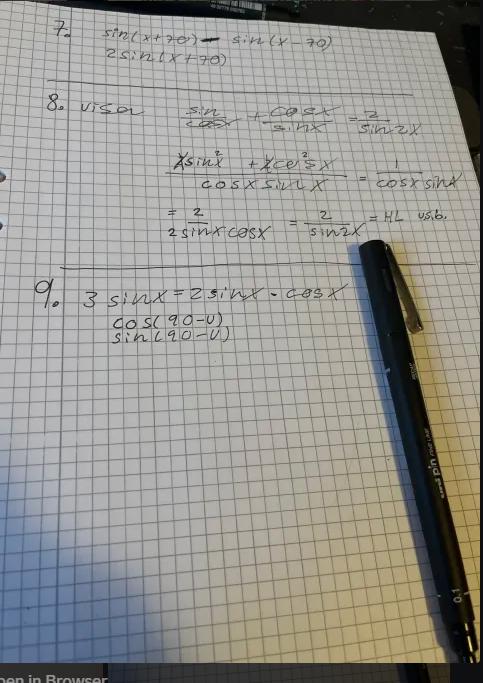 7. sin(x+70) - sin(x-70)
2sin(x+70)
8. visa sin/cosx + cosx/sinx = 2/sin2x
sin²x + cos²x / cosx sin x = 1/cosx sinx
= 2/2 sinx cosx = 2/sin2x = HL v.s.b.
9. 3 sinx = 2 sinx · cosx
cos(90-v)
sin(90-v)
0.1
pen in Browser